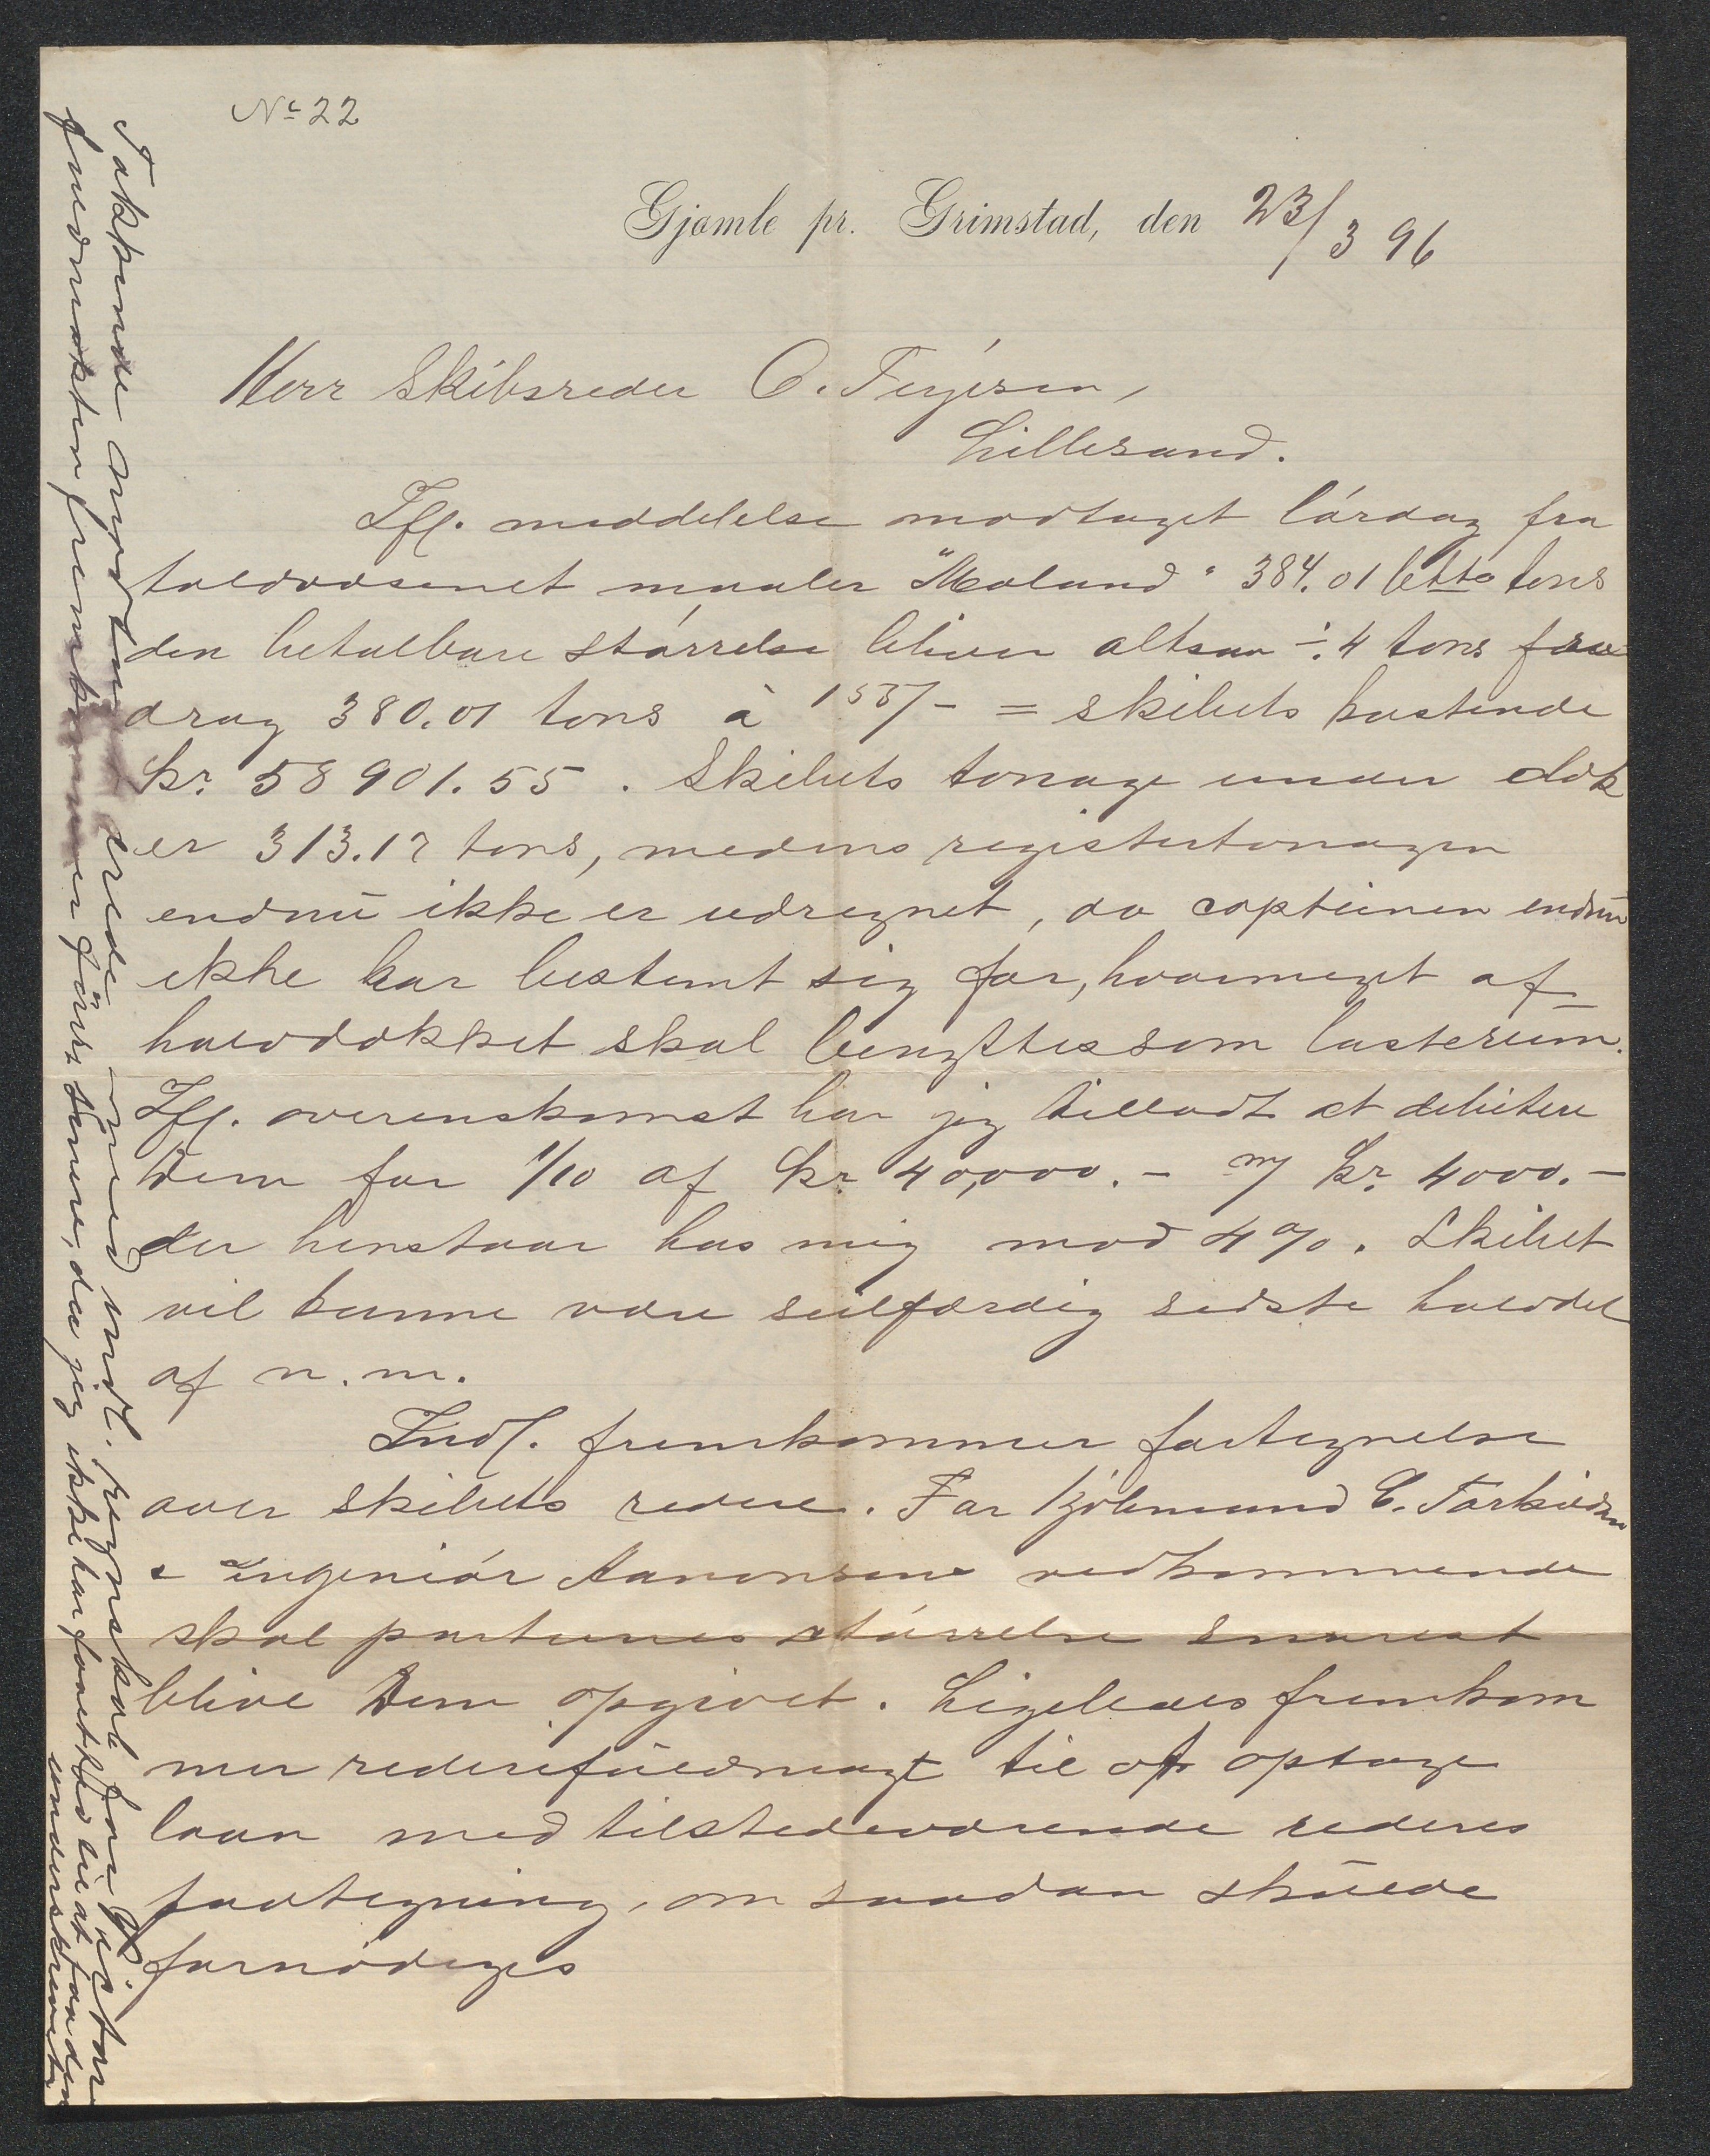 No 22
Gjømle pr. Grimstad, den 23/3 96
Herr Skibsreder O. Terjesen,
Lillesand.
Ifl. meddelelse modtaget lórdag fra
toldvæsenet maaler "Moland" 384.01 btto tons
den betalbare stórrelse bliver altsaa ÷ 4 tons fra
drag 380.01 tons à 155/- = skibets kostende
kr. 58901.55. Skibets tonage under dæk
er 313.17 tons, medens registertonagen
endnu ikke er udregnet, da capteinen endnu
ikke har bestemt sig for, hvormeget af
halvdækket skal benyttes som lasterum.
Ifl. overenskomst har jeg tilladt at debitere
Dem for 1/10 af kr. 40,000.- m/ kr. 4000.-
der henstaar hos mig mod 4%. Skibet
vil kunne være seilfærdig sidste halvdel
af n. m.
Indl. fremkommer fortegnelse
over skibets redere. For kjóbmand C. Torkildsen
& Ingeniór Aanonsens vedkommende
skal parternes stórrelse snarest
blive Dem opgivet. Ligeledes fremkom
mer rederifuldmagt til at optage
laan med tilstedeværende rederes
paategning, om saadan skulde
fornódiges
Takkende anerkjendes med indl. regnskab for
fuldmagten fremkommer först senere, da jeg ikke har faaet tid til at faa den
underskrevet